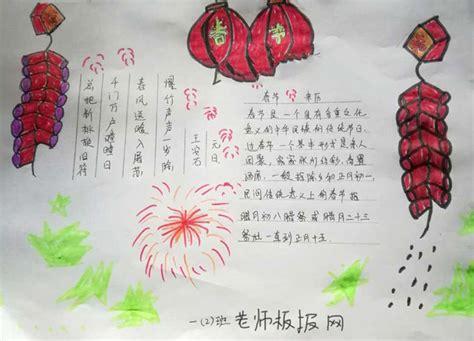 春节
元日
王安石
爆竹声声一岁除
春风送暖入屠苏
千门万户曈曈日
总把新桃换旧符
春节 来历
春节是一个具有多重文化
意义的中华民族的传统节日,
过春节一个基本形式是亲人
团聚,家家张灯结彩,布置
酒席,一般指除夕和正月初一,
民间传统意义上的春节指
腊月初八腊祭或腊月二十三
祭灶一直到正月十五.
一(2)班 老师板报网